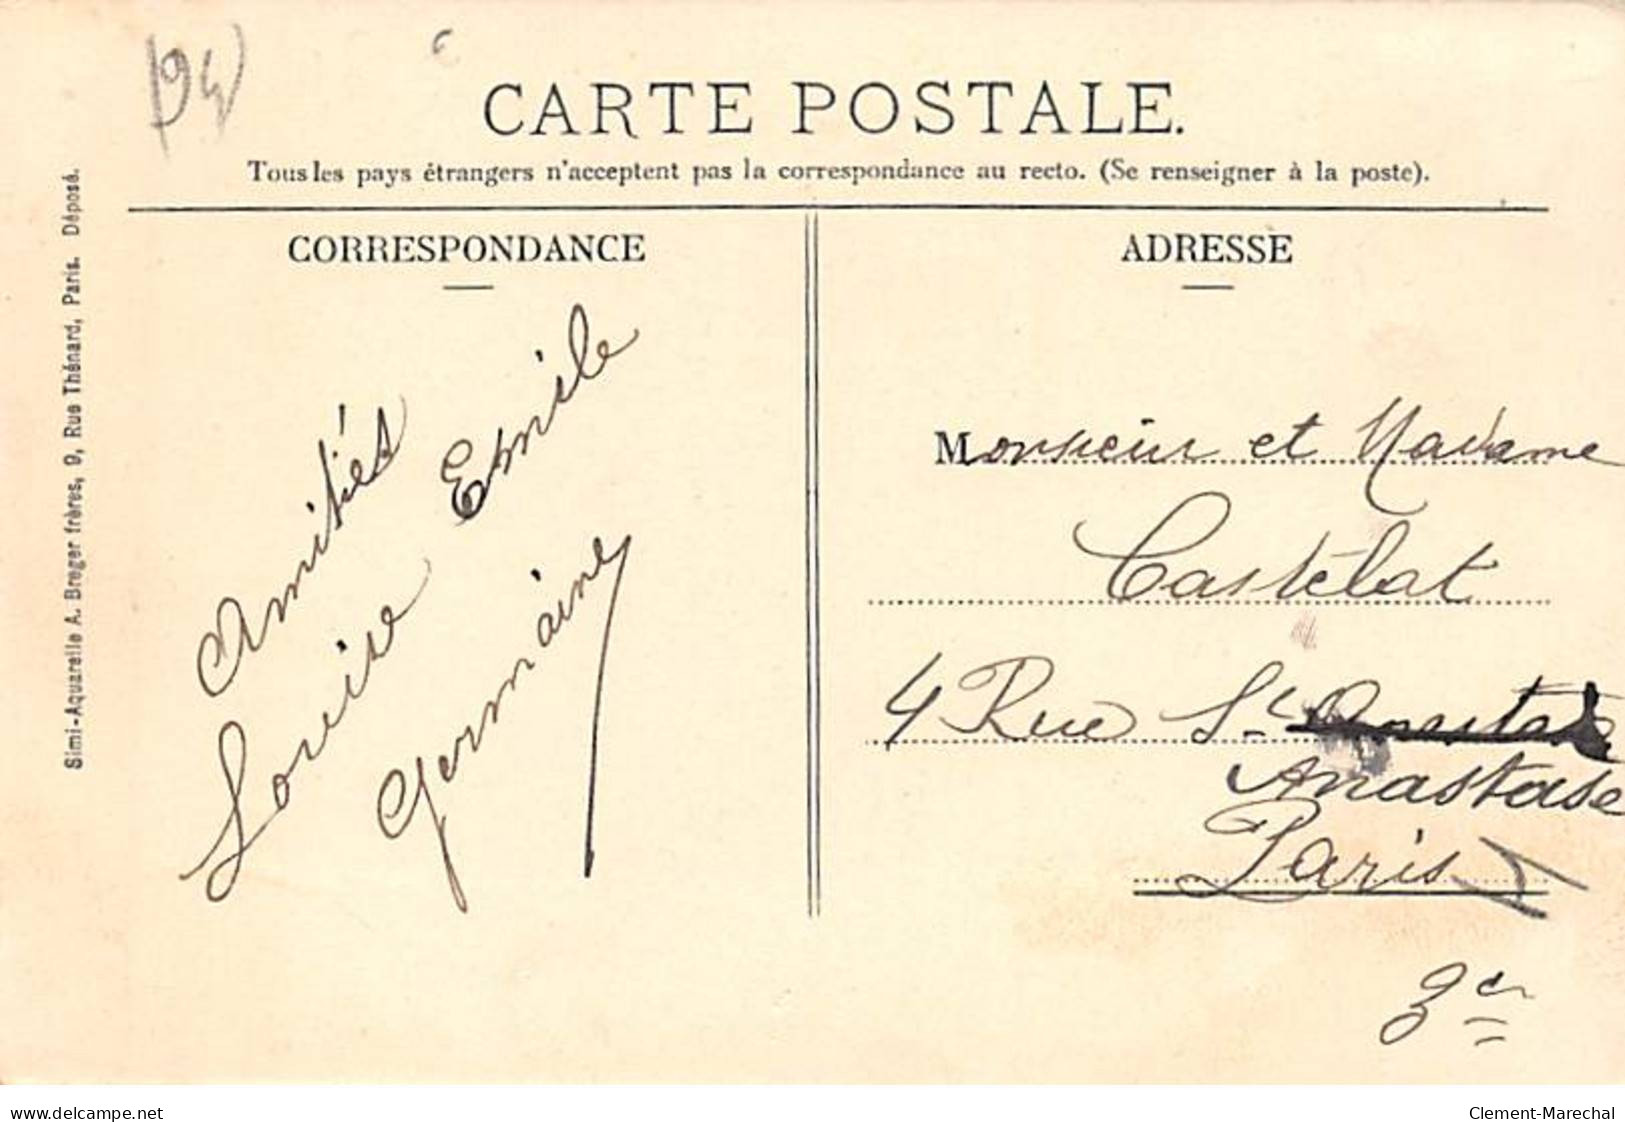 (94)
CARTE POSTALE.
Tous les pays étrangers n'acceptent pas la correspondance au recto. (Se renseigner à la poste).
CORRESPONDANCE
Amitiés
Louise Emile
Germaine
ADRESSE
Monsieur et Madame
Castélat
4 Rue St
Anastase
Paris
3e
Simi-Aquarelle A. Breger frères, 9, Rue Thénard, Paris. Déposé.
delcampe.net
Clement-Marechal